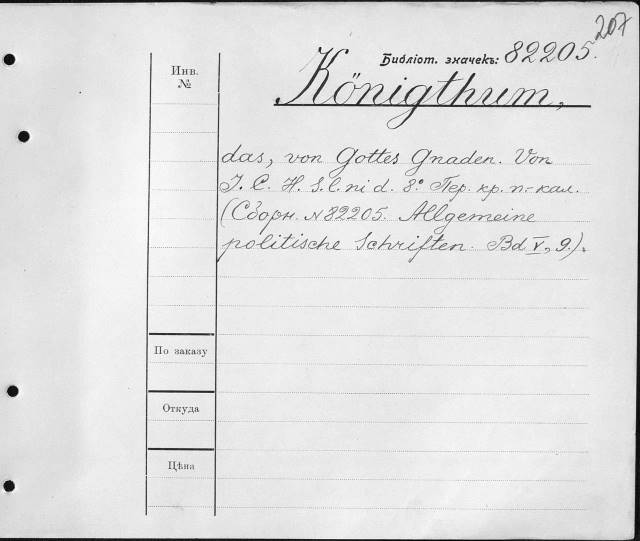 207
Библіот. значекъ: 82205.
Инв.
№
Königthum,
das, von Gottes Gnaden. Von
J. C. H. S. l. ni d. 8° Пер. кр. п.-кал.
(Сборн. №82205. Allgemeine
politische Schriften. Bd V, 9.).
По заказу
Откуда
Цѣна